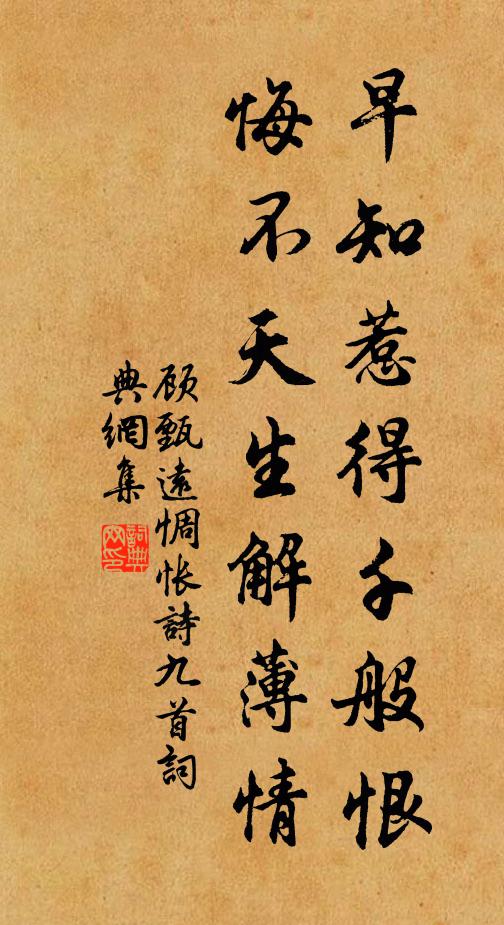 早知惹得千般恨
悔不天生解薄情
顾甄遠惆怅詩九首詞
典網集
詞典
网印